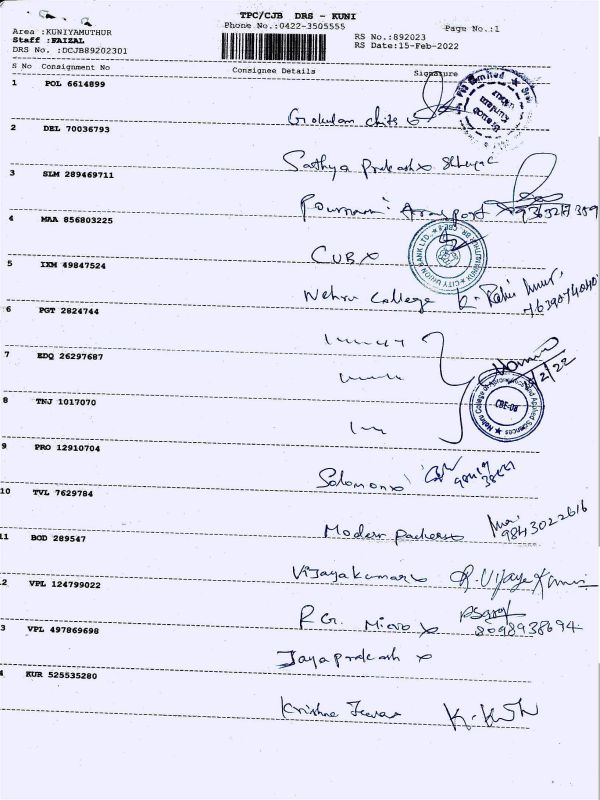 TPC/CJB DRS - KUNI
Phone No.:0422-3505555
Page No.:1
Area :KUNIYAMUTHUR
Staff :FAIZAL
DRS No. :DCJB89202301
RS No.:892023
RS Date:15-Feb-2022
S No Consignment No Consignee Details Signature
1 POL 6614899
Gokulam chits
2 DEL 70036793
Sathya Prakash
3 SLM 289469711
Pournami
4 MAA 856803225
CUB
CITY UNION BANK LTD.
5 IXM 49847524
Nehru College
6 PGT 2824744
7 EDQ 26297687
8 TNJ 1017070
Nehru College of Aeronautics and Applied Sciences
CBE-08
9 PRO 12910704
Solomon
10 TVL 7629784
Modern Packers
9843022616
11 BOD 289547
Vijayakumar R. Vijaya Kumar
2 VPL 124799022
R.G. Micro
8098938694
3 VPL 497869698
Jayaprakash
4 KUR 525535280
Krishna